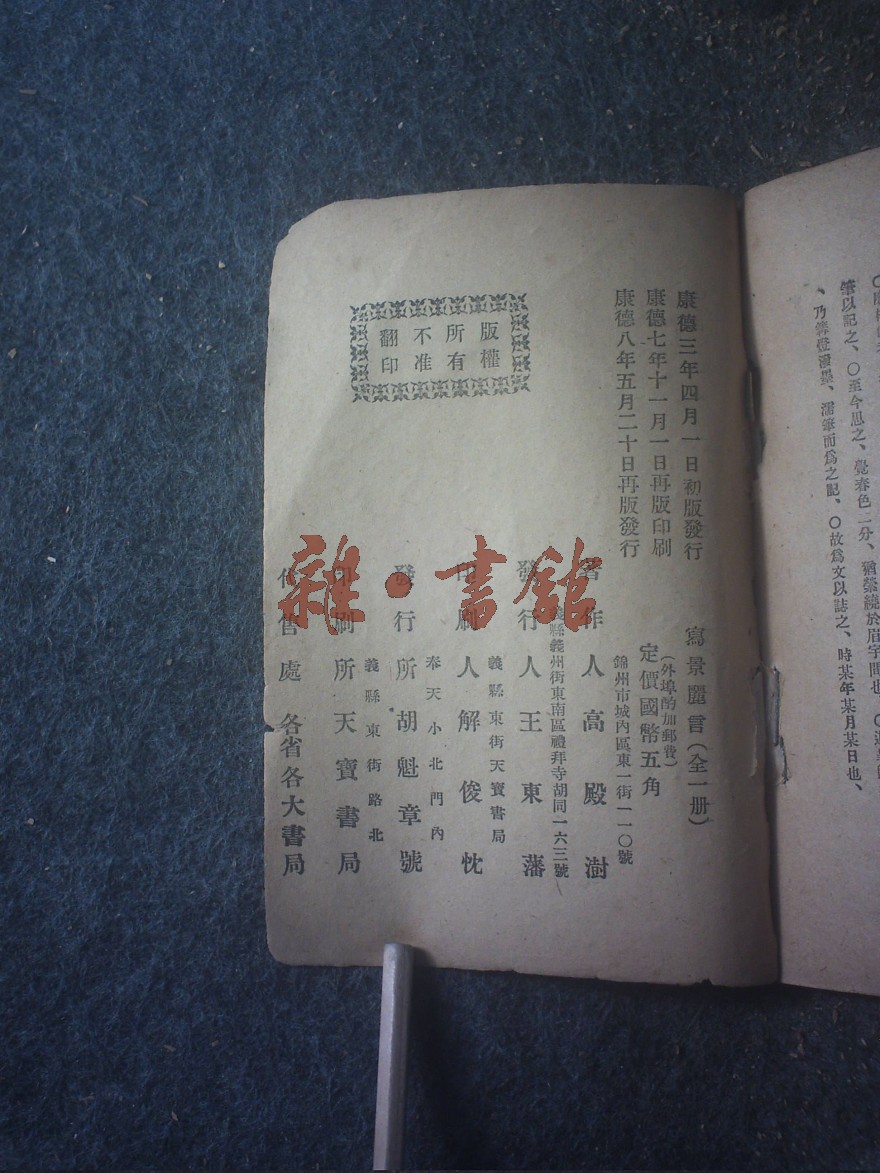 筆以記之、〇至今思之、覺春色二分、猶縈繞於眉宇間也
、濡筆而爲之記、〇故爲文以誌之、時某年某月某日也、
康德三年四月一日初版發行
康德七年十一月一日再版印刷
康德八年五月二十日再版發行
寫景麗言（全一册）
（外埠酌加郵費）
定價國幣五角
錦州市城內區東一街一一〇號
著作人高殿澍
義縣義州街東南區禮拜寺胡同一六三號
發行人王東藩
義縣東街天寶書局
印刷人解俊忱
奉天小北門內
發行所胡魁章號
義縣東街路北
印刷所天寶書局
代售處 各省各大書局
版權
所有
不准
翻印
雜·書館